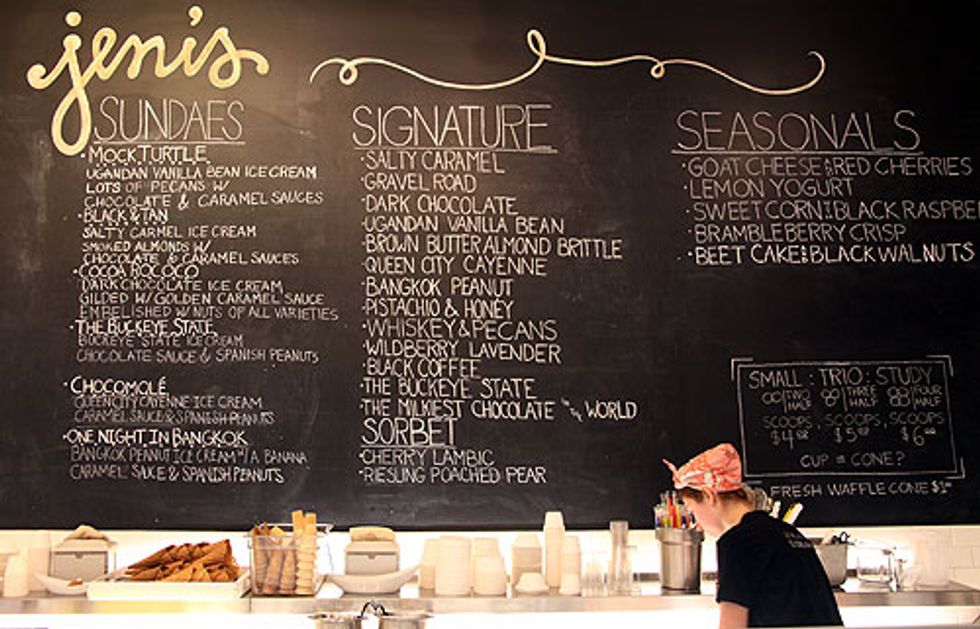 jeni's
SUNDAES
·MOCK TURTLE
UGANDAN VANILLA BEAN ICE CREAM
LOTS OF PECANS W/
CHOCOLATE & CARAMEL SAUCES
·BLACK & TAN
SALTY CARMEL ICE CREAM
SMOKED ALMONDS W/
CHOCOLATE & CARAMEL SAUCES
·COCOA ROCOCO
DARK CHOCOLATE ICE CREAM
GILDED W/ GOLDEN CARAMEL SAUCE
EMBELISHED W/ NUTS OF ALL VARIETIES
·THE BUCKEYE STATE
BUCKEYE STATE ICE CREAM
CHOCOLATE SAUCE & SPANISH PEANUTS
·CHOCOMOLÉ
QUEEN CITY CAYENNE ICE CREAM
CARAMEL SAUCE & SPANISH PEANUTS
·ONE NIGHT IN BANGKOK
BANGKOK PEANUT ICE CREAM W/ A BANANA
CARAMEL SAUCE & SPANISH PEANUTS
SIGNATURE
·SALTY CARAMEL
·GRAVEL ROAD
·DARK CHOCOLATE
·UGANDAN VANILLA BEAN
·BROWN BUTTER ALMOND BRITTLE
·QUEEN CITY CAYENNE
·BANGKOK PEANUT
·PISTACHIO & HONEY
·WHISKEY & PECANS
·WILDBERRY LAVENDER
·BLACK COFFEE
·THE BUCKEYE STATE
·THE MILKIEST CHOCOLATE IN THE WORLD
SORBET
·CHERRY LAMBIC
·RIESLING POACHED PEAR
SEASONALS
·GOAT CHEESE & RED CHERRIES
·LEMON YOGURT
·SWEET CORN & BLACK RASPBE
·BRAMBLEBERRY CRISP
·BEET CAKE AND BLACK WALNUTS
SMALL : TRIO : STUDY
TWO HALF THREE HALF FOUR HALF
SCOOPS, SCOOPS, SCOOPS
$4 $5 $6
CUP OR CONE?
FRESH WAFFLE CONE $1